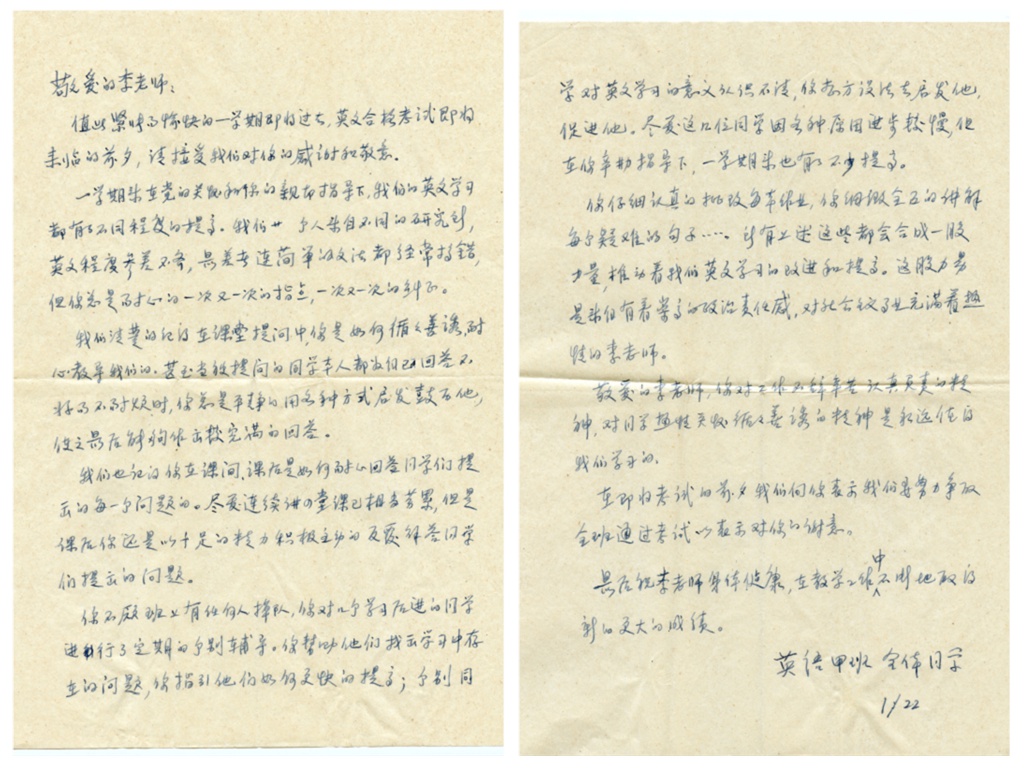 敬爱的李老师：
值此紧张而愉快的一学期即将过去，英文合格考试即将
来临的前夕，请接受我们对你的感谢和敬意。
一学期来在党的关怀和你的亲切指导下，我们的英文学习
都有了不同程度的提高。我们廿个人来自不同的研究所，
英文程度参差不齐，最差者连简单的文法都经常搞错，
但你总是耐心的一次又一次的指点，一次又一次的纠正。
我们清楚的记得在课堂提问中，你是如何循循善诱，耐
心教导我们的。甚至当被提问的同学本人都为自己回答不
好而不耐烦时，你总是平静的用各种方式启发鼓励他，
使之最后能够作出较完满的回答。
我们也记得你在课间、课后是如何耐心回答同学们提
出的每一个问题的。尽管连续讲了堂课已相当劳累，但是
课后你还是以十足的精力积极主动的反复解答同学
们提出的问题。
你不愿班上有任何人掉队，你对几个学习后进的同学
进行了定期的个别辅导。你帮助他们找出学习中存
在的问题，你指引他们如何更快的提高；个别同
学对英文学习的意义认识不清，你想方设法去启发他，
促进他。尽管这几位同学因各种原因进步较慢，但
在你辛勤指导下，一学期来也有了不少提高。
你仔细认真的批改每本作业，你细微全面的讲解
每个疑难的句子……。所有上述这些都会合成一股
力量，推动着我们英文学习的改进和提高。这股力量
是来自有着崇高的政治责任感，对社会主义事业充满着热
情的李老师。
敬爱的李老师，你对工作不辞辛苦认真负责的精
神，对同学热情关怀循循善诱的精神是永远值得
我们学习的。
在即将考试的前夕我们向你表示我们要努力争取
全班通过考试以表示对你的谢意。
最后祝李老师身体健康，在教学工作中不断地取得
新的更大的成绩。
英语甲班 全体同学
1/22